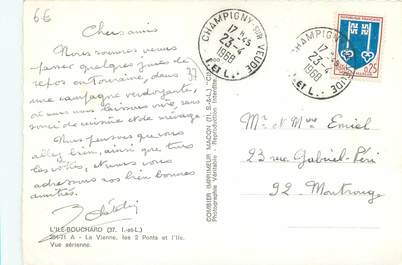 66
Chers amis
Nous sommes venus
passer quelques jours de
repos en Touraine, dans
une campagne verdoyante,
où nous nous laissons vivre, sans
souci de cuisine et de ménage
Nous pensons que vous
allez bien, ainsi que tous
les vôtres, et nous vous
adressons nos bien bonnes
amitiés.
37
L'ILE-BOUCHARD (37. I.-et-L.)
A - La Vienne, les 2 Ponts et l'Ile.
Vue aérienne.
COMBIER IMPRIMEUR MACON (71. S.-&-L.)
Photographie Véritable - Reproduction Interdite
CHAMPIGNY-SUR-VEUDE
17 H.45
23-4
1968
I. ET L.
CHAMPIGNY-SUR-VEUDE
17 H.45
23-4
1968
I. ET L.
0,25
Mr et Mme Emiel
23 rue Gabriel-Péri
92. Montrouge